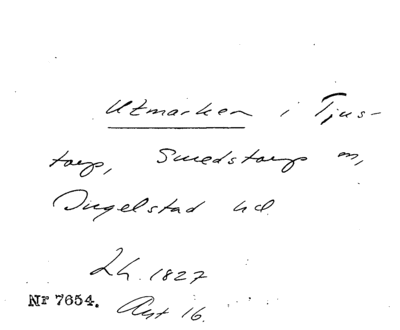 Utmarken i Tjus-
torp, Smedstorp sn,
Ingelstad hd.
Lh. 1827
Nr 7654. Akt 16.